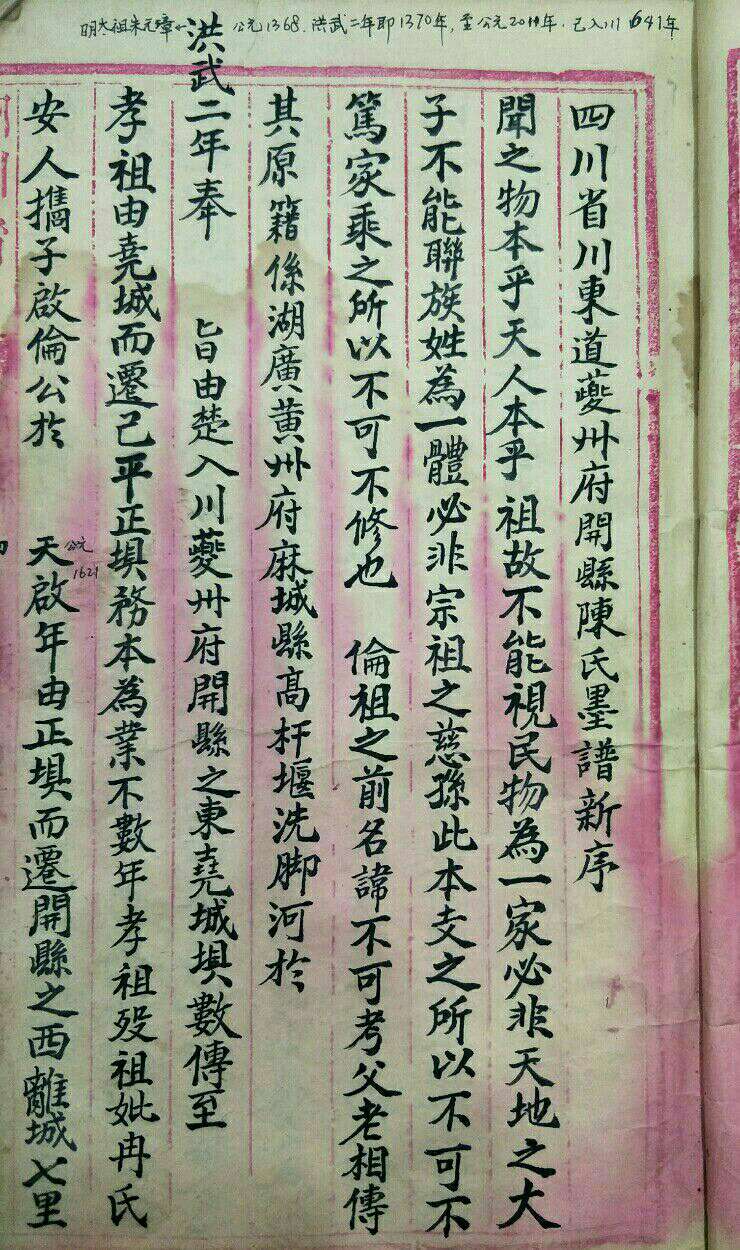 明太祖朱元璋 公元1368. 洪武二年即1370年, 至公元2011年. 已入川641年
四川省川東道夔州府開縣陳氏墨譜新序
聞之物本乎天人本乎 祖故不能視民物為一家必非天地之大
子不能聯族姓為一體必非宗祖之慈孫此本支之所以不可不
篤家乘之所以不可不修也 倫祖之前名諱不可考父老相傳
其原籍係湖廣黄州府麻城縣高杆堰洗脚河於
洪武二年奉 旨由楚入川夔州府開縣之東堯城埧數傳至
孝祖由堯城而遷己平正埧務本為業不數年孝祖殁祖妣冉氏
安人攜子啟倫公於 天啟年由正埧而遷開縣之西離城七里
公元
1621